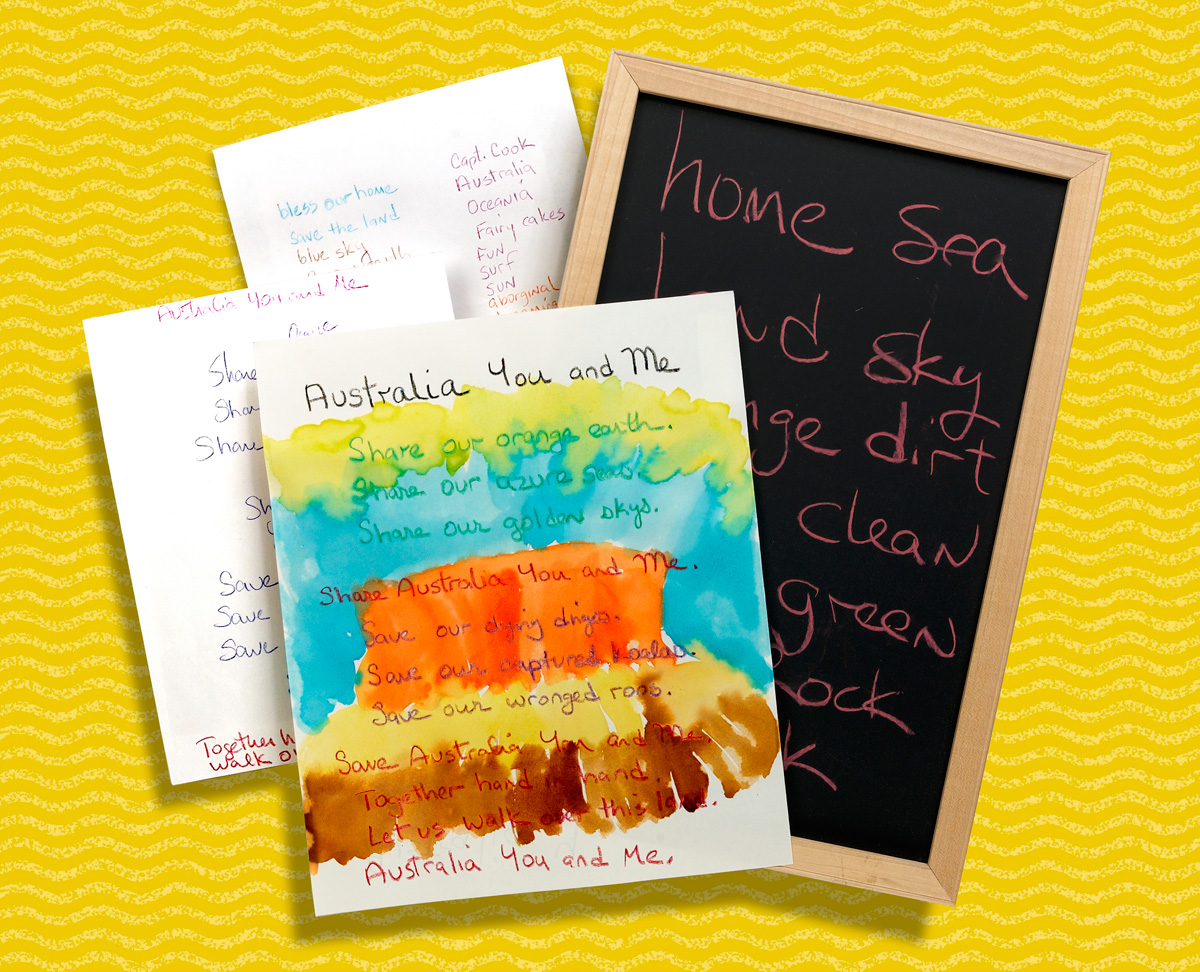 bless our home
save the land
blue sky
Capt. Cook
Australia
Oceania
Fairy cakes
Fun
Surf
Sun
aborginal
Australia You and Me
Share
Shar
Share
Sh
Save
Save
Save
Together h
walk o
Australia You and Me
Share our orange earth.
Share our azure seas.
Share our golden skys.
Share Australia You and Me.
Save our dying dingos.
Save our captured koalas.
Save our wronged roos.
Save Australia You and Me.
Together hand in hand.
Let us walk over this land.
Australia You and Me.
home Sea
nd sky
nge dirt
clean
green
Rock
k